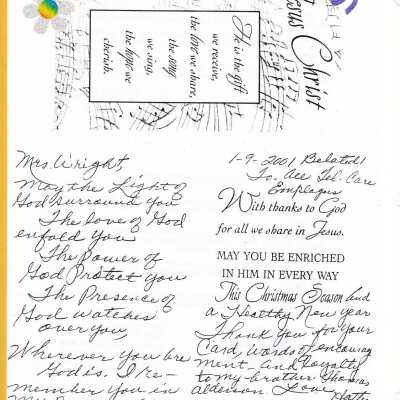 Jesus Christ
He is the gift
we receive,
the love we share,
the song
we sing,
the hope we
cherish.
Mrs. Wright,
May the Light of
God surround you
The love of God
enfold you
The Power of
God Protect you
The Presence of
God watches
over you,
Wherever you are
God is. I re-
member you in
1-9-2001 Belated!
To All Tel. Care
With thanks to God
for all we share in Jesus.
MAY YOU BE ENRICHED
IN HIM IN EVERY WAY
This Christmas Season And
a Healthy New Year
Thank you for your
Card, words of encourag
ment - and loyalty
to my brother Thomas
Alderson. Love